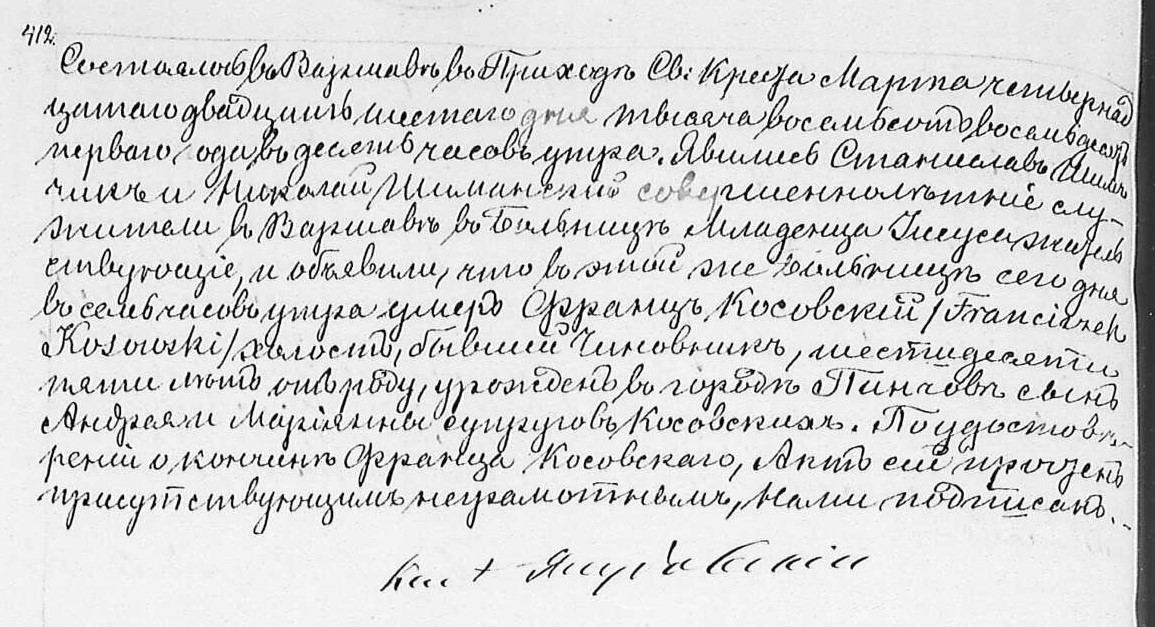 412.
Состоялось въ Варшавѣ въ Приходѣ Св: Креста Марта четырнад
цатаго двадцать шестаго дня тысяча восемьсотъ восемьдесятъ
перваго года, въ десять часовъ утра. Явились Станиславъ Шим
чикъ и Николай Шиманскій совершеннолѣтніе слу-
жители въ Варшавѣ въ Больницѣ Младенца Іисуса житель
ствующіе, и объявили, что въ этой же больницѣ сего дня
въ семь часовъ утра умеръ Францъ Косовскій /Franciszek
Kosowski/ холостъ, бывшій Чиновникъ, шестидесяти
пяти лѣтъ отъ роду, урожденъ въ городѣ Пинчовѣ сынъ
Андрея и Маріянны супруговъ Косовскихъ. По удостовѣ-
реніи о кончинѣ Франца Косовскаго, Актъ сей прочтенъ
присутствующимъ неграмотнымъ, Нами подписанъ.